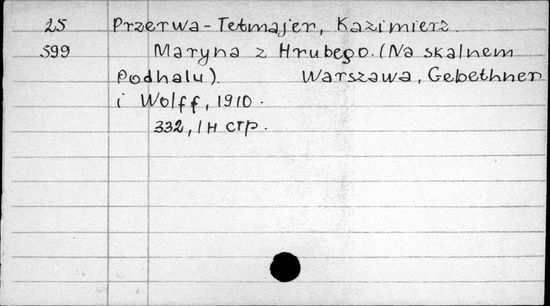 25 Przerwa-Tetmajer, Kazimierz.
599 Maryna z Hrubego. (Na skalnem
Podhalu). Warszawa, Gebethner
i Wolff, 1910.
332, 1н стр.